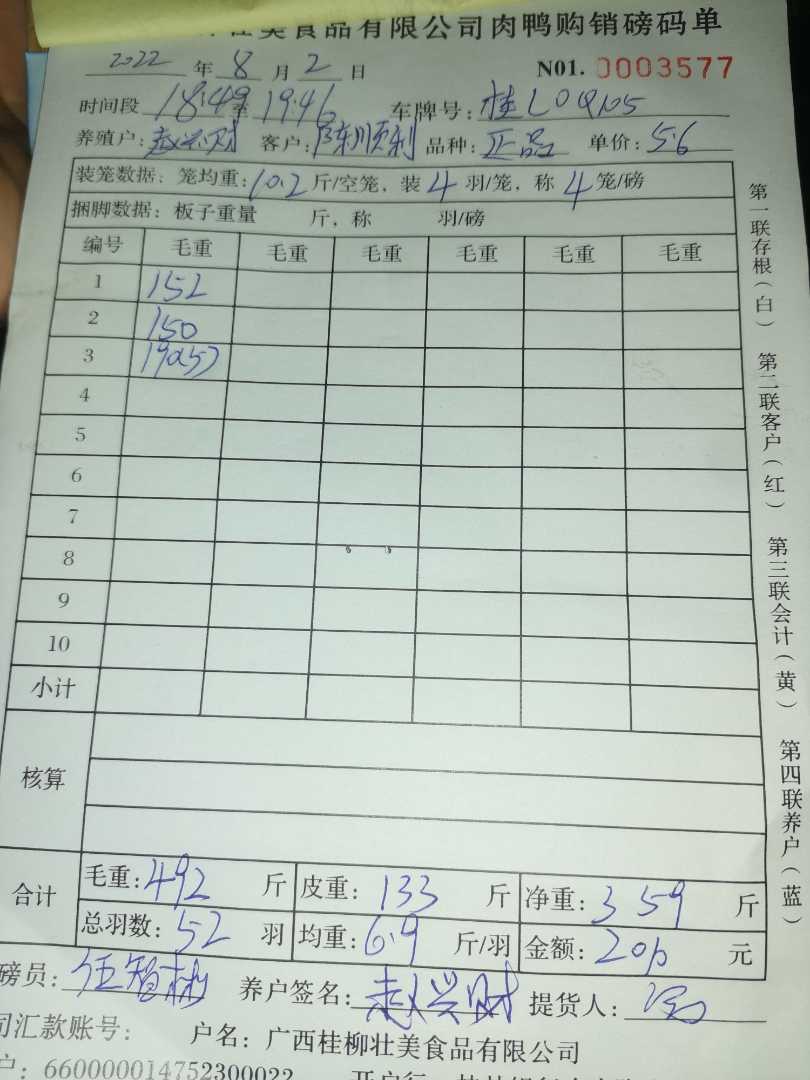 壮美食品有限公司肉鸭购销磅码单
2022 年 8 月 2 日 N01. 0003577
时间段 18:49至19:46 车牌号: 桂L0Q105
养殖户: 赵兴财 客户: 陈顺利 品种: 正品 单价: 5.6
装笼数据: 笼均重: 10.2 斤/空笼, 装 4 羽/笼, 称 4 笼/磅
捆脚数据: 板子重量 斤, 称 羽/磅
编号 毛重 毛重 毛重 毛重 毛重 毛重
1 152
2 150
3 190(5)
4
5
6
7
8
9
10
小计
核算
合计 毛重: 492 斤 皮重: 133 斤 净重: 359 斤
总羽数: 52 羽 均重: 6.9 斤/羽 金额: 2010 元
磅员: 伍智彬 养户签名: 赵兴财 提货人:
司汇款账号: 户名: 广西桂柳壮美食品有限公司
户: 660000014752300022 开户行
第一联存根(白) 第二联客户(红) 第三联会计(黄) 第四联养户(蓝)